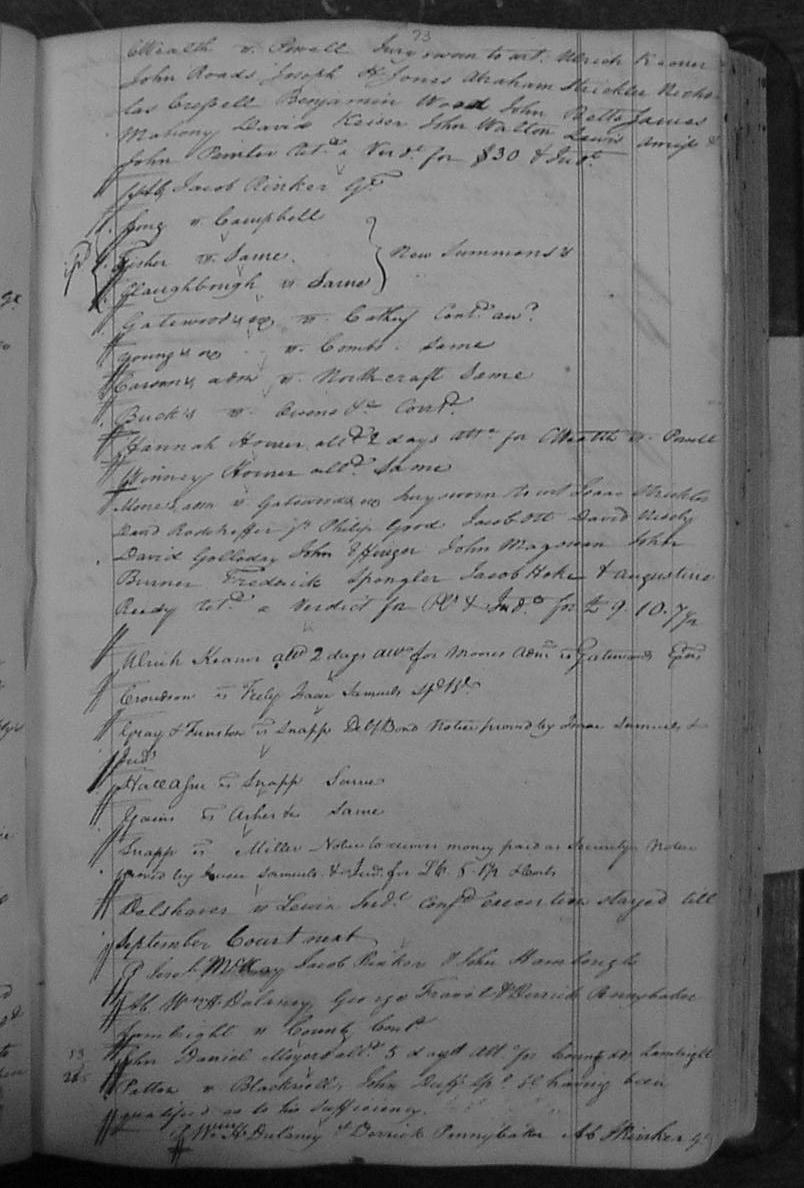 73
C Wealth v. Powell Jury sworn to wit. Ulrich Keaner
John Roads Joseph H Jones Abraham Strickler Nicho-
las Cressell Benjamin Wood John Betts James
Mahony David Keiser John Walton Lewis Amiss &
John Pointer Retd a Verdt for $30 & Judt.
Ab, Jacob Rinker Gt
Long v. Campbell
Fisher v. Same. } New Summons's
Claughbough v Same
Gatewoods ex v. Cathey Contd aw.
Young's ex v. Combs. Same
Carson's adm v. Northcraft Same
Buck's v. Owens &c Contd.
Hannah Homer alld 2 days atte for C Wealth v. Powell
Winney Homer alld. Same
Moore's adm v Gatewoods ex Jury sworn to wit Isaac Strickler
David Rodeheffer jr Philip Good Jacob Ott David Neely
David Golladay John Effinger John Magowan John
Burner Frederick Spengler Jacob Hoke & Augustine
Ready Retd a verdict for Plt & Judt for £ 9.10.7½
Ulrich Keaner alld 2 days awe for Moores Admr vs Gatewoods Exors
Crowdson vs Feely Isaac Samuels Spl Bl.
Gray & Funston vs Snapp Delf Bond Notice proved by Isaac Samuels &
Jud
vs Snapp Same
Gains vs Asher &c Same
Snapp vs Miller Notice to recover money paid as Security Notice
proved by Isaac Samuels & Judt for & Costs
v Lewis Judt Confd Execution stayed till
September Court next
P Josh McKay Jacob Rinker & John Hambough
Ab Wm H Dulaney George Fravel & Derrick Pennybaker
Lambright v County Contd
John Daniel Moyers alld. 5 days att for County ads Lambright
Patton v Blackwell, John Duff Spl Bl having been
qualified as to his sufficiency.
P Wm H Dulaney & Derrick Pennybaker Ab J Rinker Gt